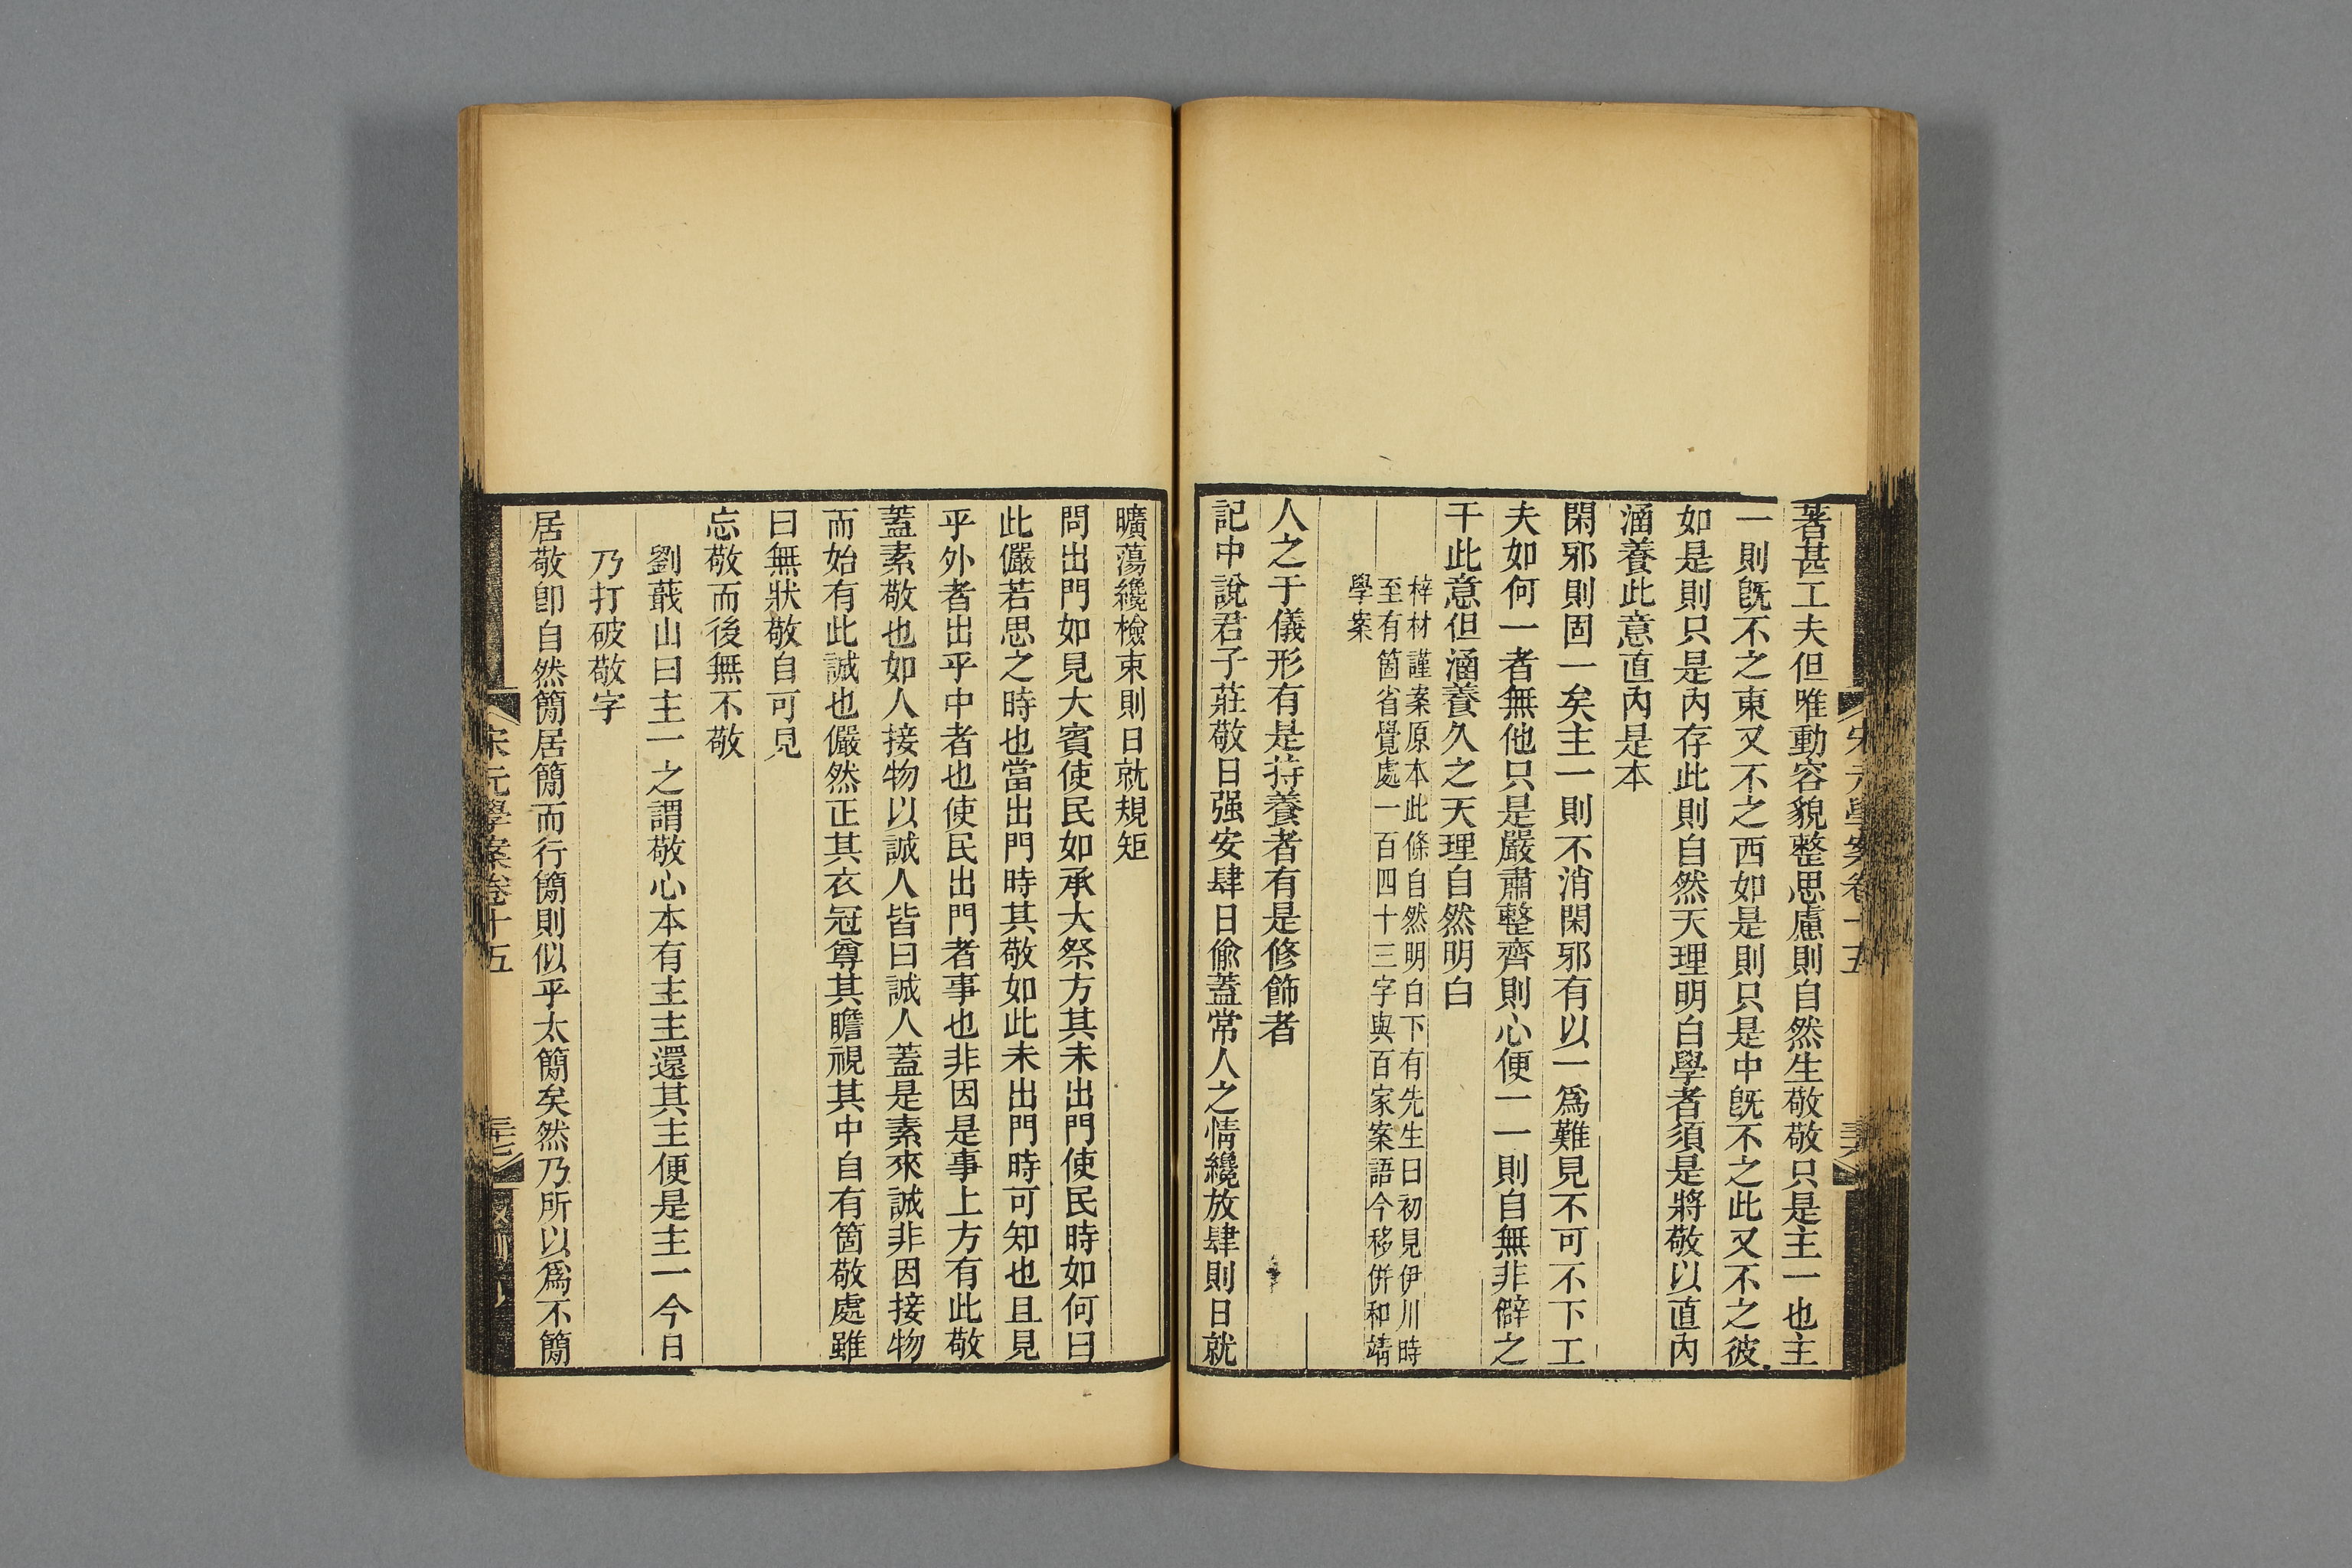 著甚工夫但唯動容貌整思慮則自然生敬敬只是主一也主
一則既不之東又不之西如是則只是中既不之此又不之彼
如是則只是內存此則自然天理明白學者須是將敬以直內
涵養此意直內是本
閑邪則固一矣主一則不消閑邪有以一爲難見不可不下工
夫如何一者無他只是嚴肅整齊則心便一一則自無非僻之
干此意但涵養久之天理自然明白
梓材謹案原本此條自然明白下有先生日初見伊川時
至有箇省覺處一百四十三字與百家案語今移併和靖
學案
人之于儀形有是持養者有是修飾者
記中說君子莊敬日强安肆日偸蓋常人之情纔放肆則日就
曠蕩纔檢束則日就規矩
問出門如見大賓使民如承大祭方其未出門使民時如何曰
此儼若思之時也當出門時其敬如此未出門時可知也且見
乎外者出乎中者也使民出門者事也非因是事上方有此敬
蓋素敬也如人接物以誠人皆曰誠人蓋是素來誠非因接物
而始有此誠也儼然正其衣冠尊其瞻視其中自有箇敬處雖
曰無狀敬自可見
忘敬而後無不敬
劉蕺山曰主一之謂敬心本有主主還其主便是主一今日
乃打破敬字
居敬卽自然簡居簡而行簡則似乎太簡矣然乃所以爲不簡
宋元學案卷十五